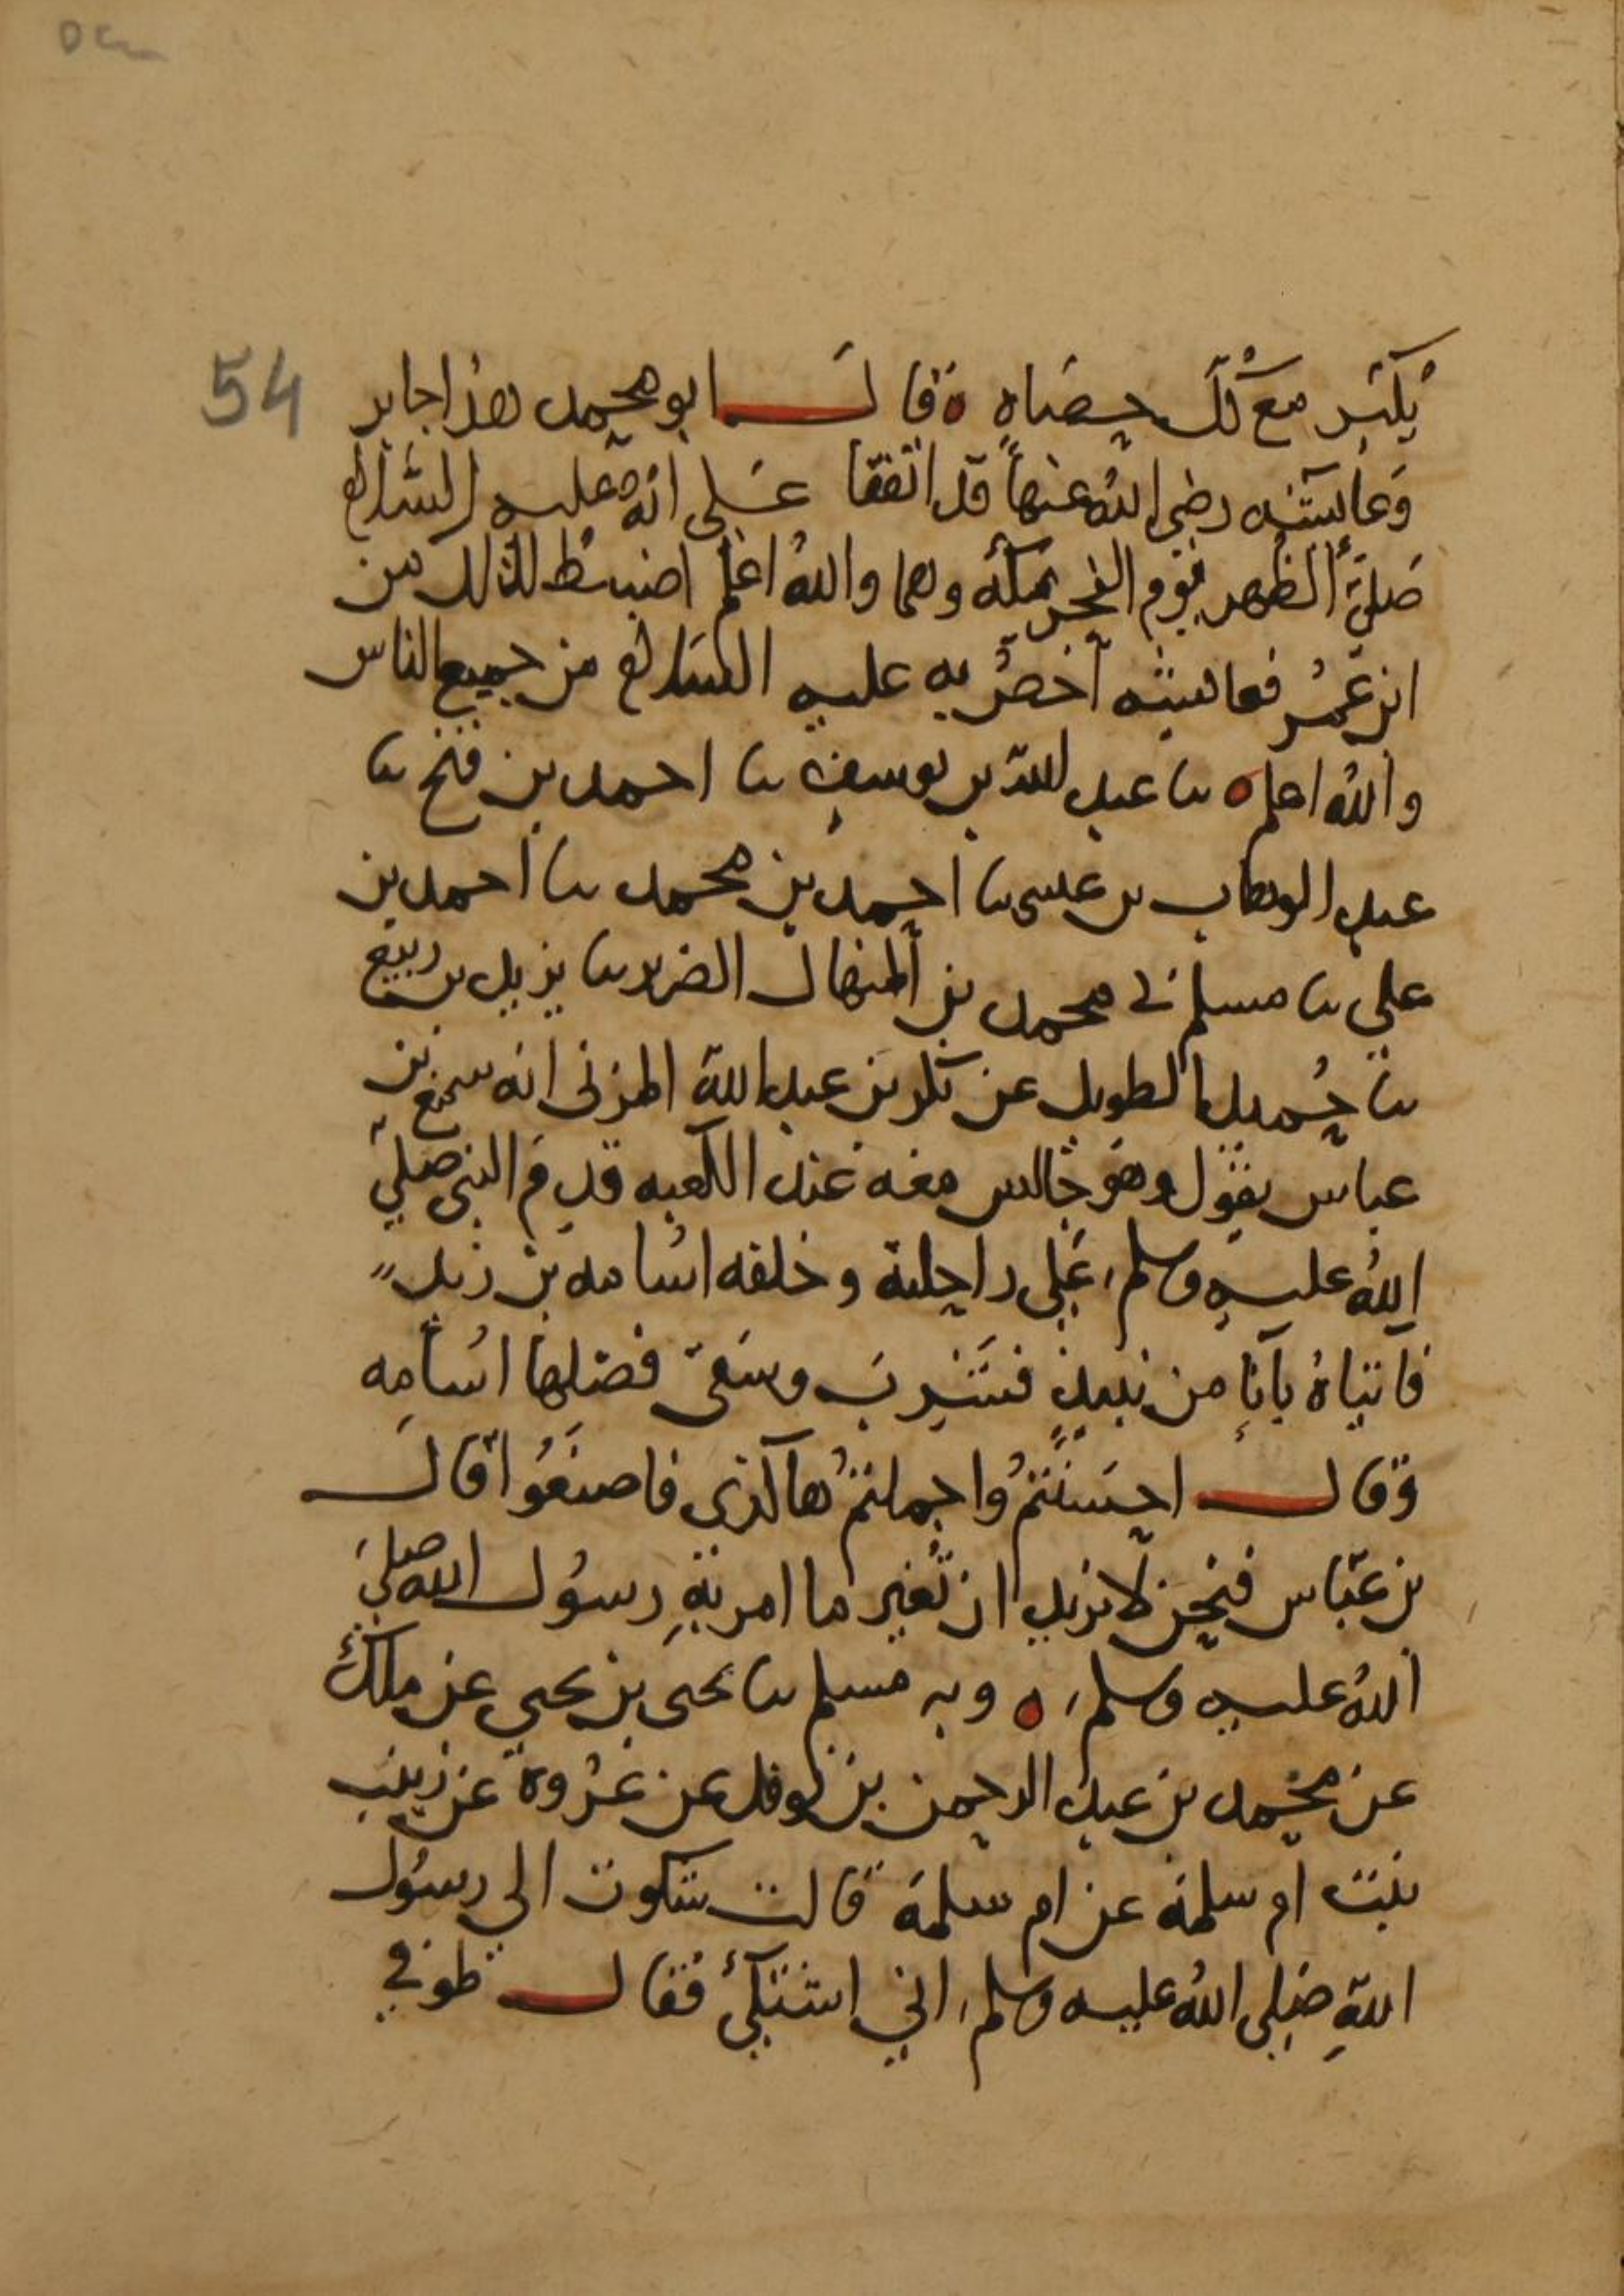 54
يكبر مع كل حصاه ه وقال ابو محمد هذا جابر
وعايشه رضي الله عنها قد اتفقا على انه عليه السلام
صلى الظهر يوم النحر بمكة وهما والله اعلم اضبط لذلك من
ابن عمر فعايشه اخص به عليه السلام من جميع الناس
والله اعلم ه نا عبد الله بن يوسف نا احمد بن فتح نا
عبد الوهاب بن عيسى نا احمد بن محمد نا احمد بن
علي نا مسلم ني محمد بن المنهال الضرير نا يزيد بن زريع
نا حميد الطويل عن بكر بن عبد الله المزني انه سمع بن
عباس يقول وهو جالس معه عند الكعبه قدم النبي صلى
الله عليه وسلم على راحلته وخلفه اسامه بن زيد
فاتيناه باناء من نبيذ فشرب وسقى فضلها اسامه
وقال احسنتم واجملتم هاكذى فاصنعوا قال
بن عباس فنحن لا نريد ان نغير ما امر به رسول الله صلى
الله عليه وسلم ه وبه مسلم نا يحيى بن يحيى عن ملك
عن محمد بن عبد الرحمن بن نوفل عن عروة عن زينب
بنت ام سلمة عن ام سلمة قالت شكوت الى رسول
الله صلى الله عليه وسلم اني اشتكي فقال طوفي